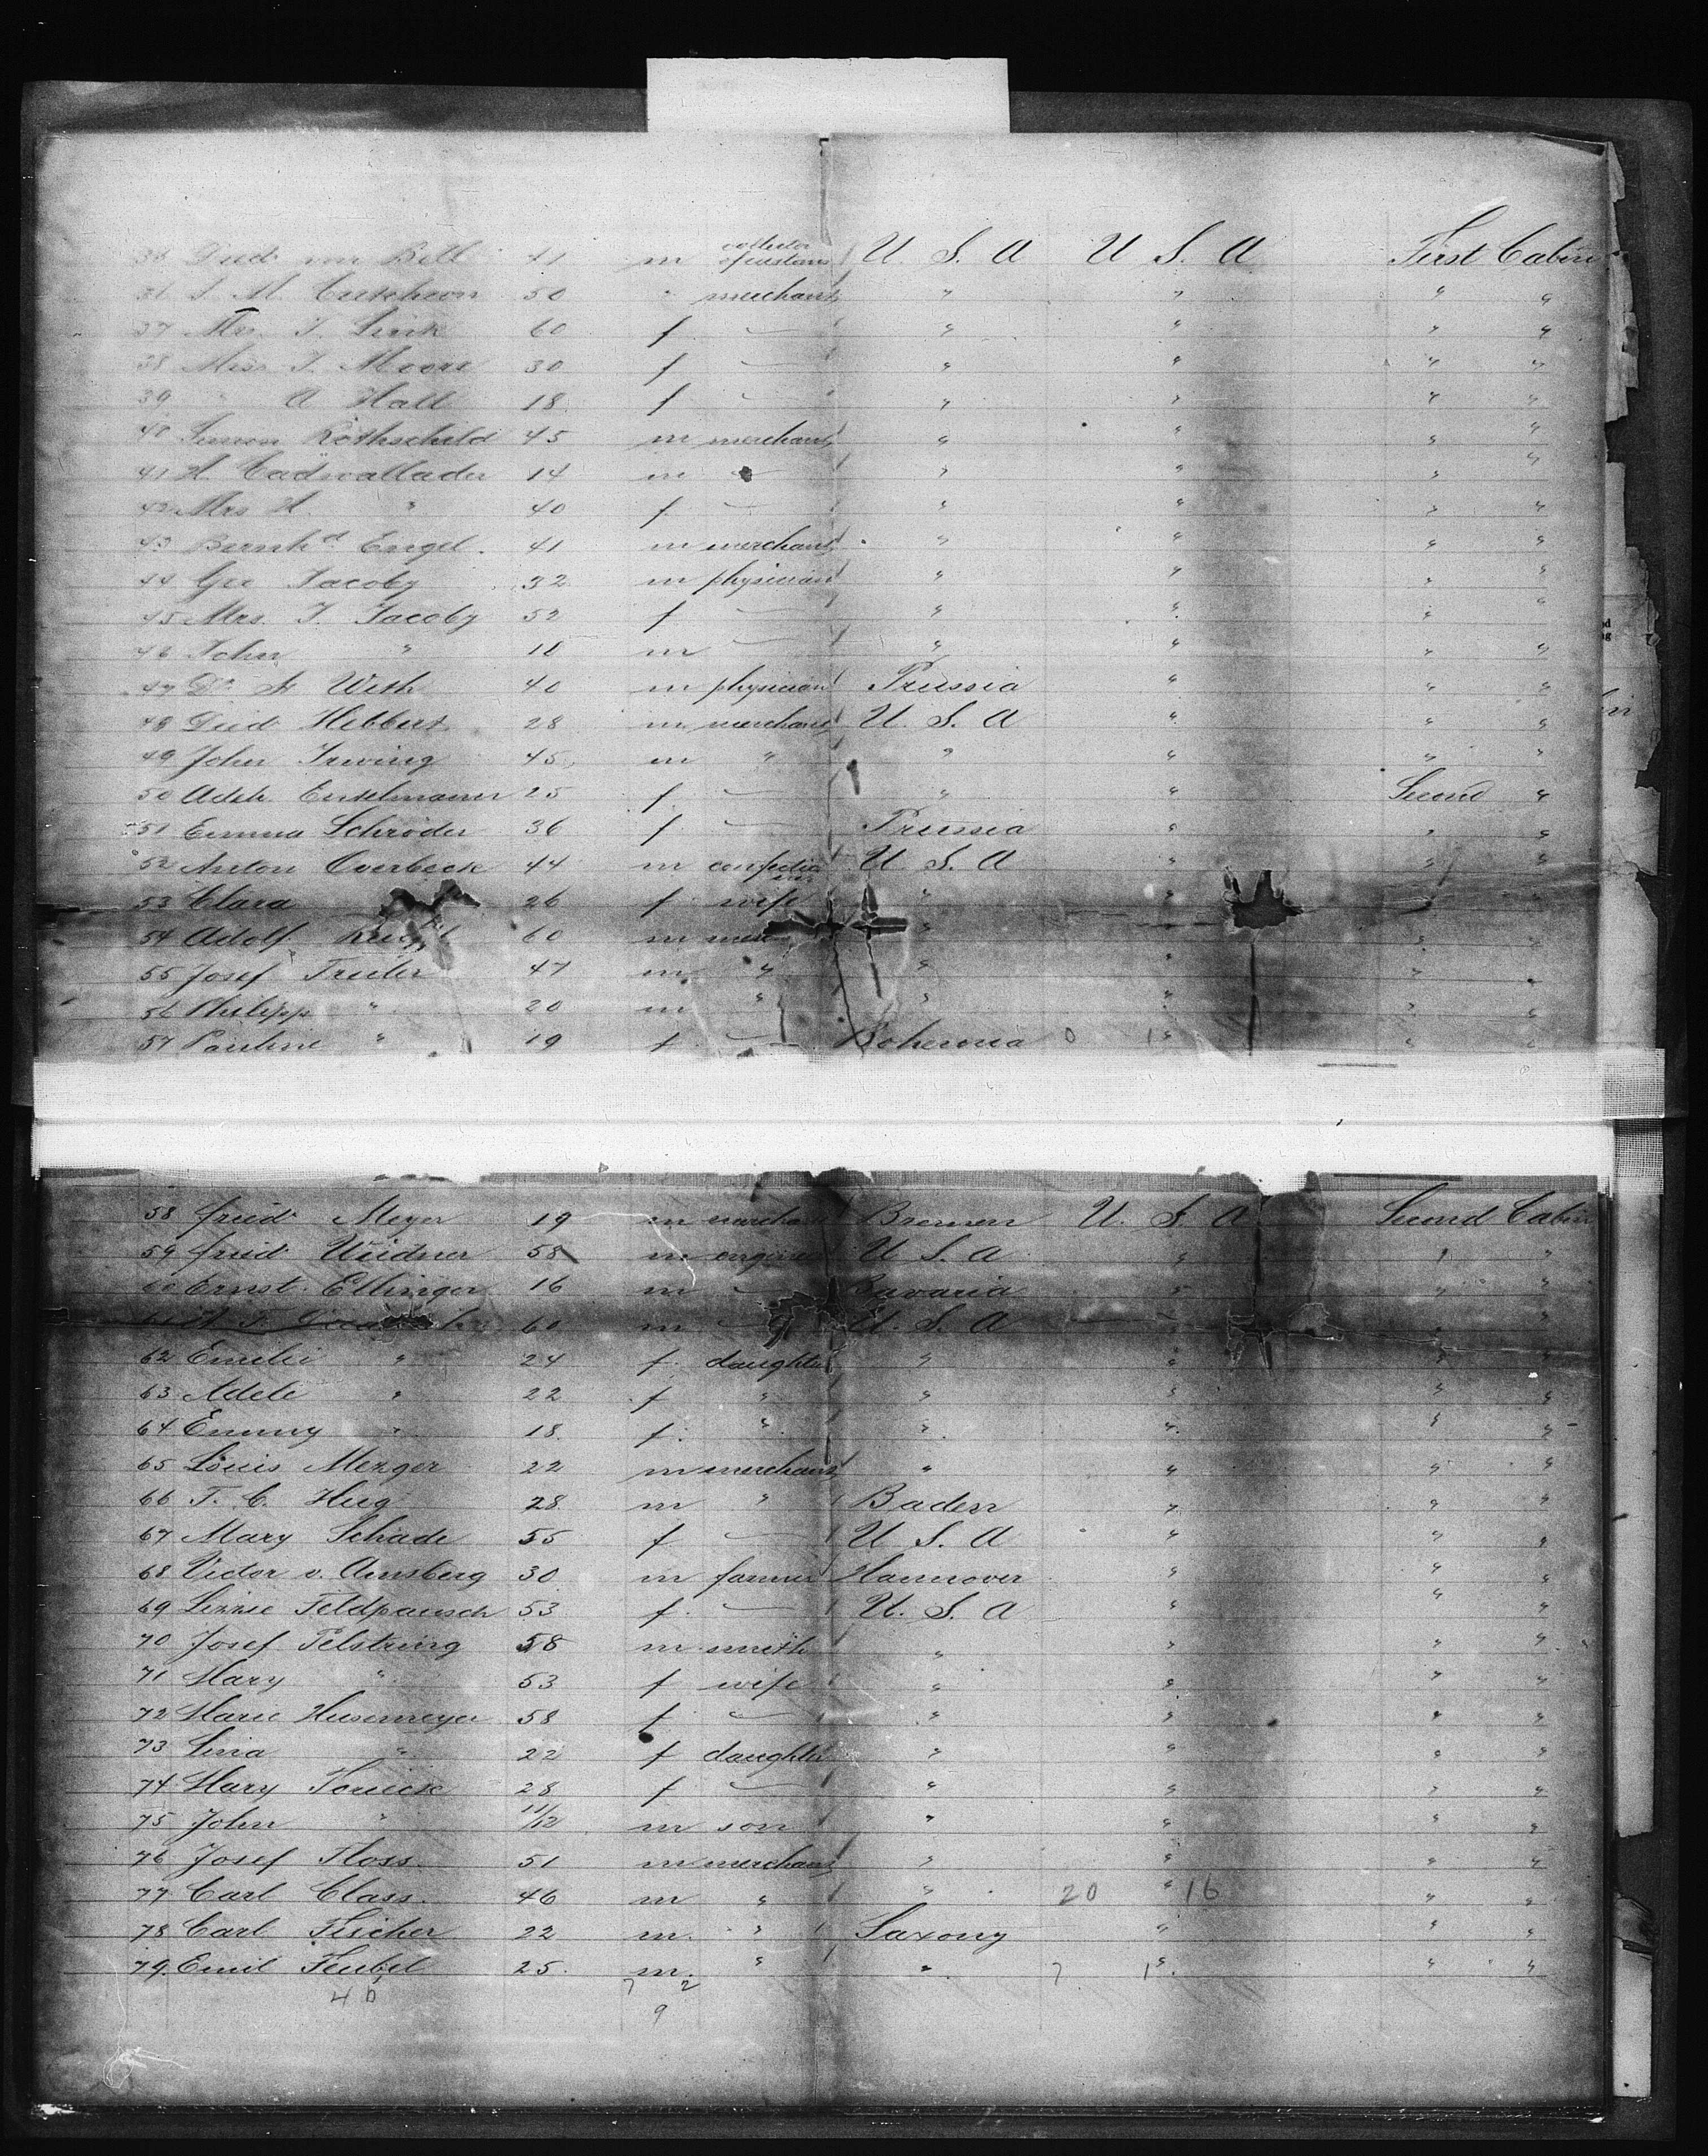 collector
Died. von Bill 41 m of customs U. S. A U. S. A First Cabin
36 S. M. Cutcheon 50 " merchant " " " "
37 Mrs. T. Sink 60 f — " " " "
38 Miss T. Moore 30 f — " " " "
39 " A Hall 18 f — " " " "
40 Simon Rothschild 45 m merchant " " " "
41 H. Cadwallader 14 m " " " "
42 Mrs H. " 40 f. — " " " "
43 Bernhd Engel. 41 m merchant " " " "
44 Geo Jacoby 32 m physician " " " "
45 Mrs. T. Jacoby 52 f — " " " "
46 John " 18 m — " " " "
47 Dr. A With 40 m physician Prussia " " "
48 Died Hibbert 28 m merchant U. S. A " " "
49 John Irwing 45 m " " " " "
50 Adele Enkelmann 25 f. — " " Second "
51 Emma Schröder 36 f. — Prussia " " "
52 Anton Overbeck 44 m U. S. A " " "
53 Clara 26 f. wife " " "
54 Adolf 60 m " " " "
55 Josef Treiler 47 m " " " " "
56 Philipp " 20 m " " " " "
57 Pauline " 19 f. — Bohemia 0 1 " " "
58 fried. Meyer 19 m merchant Bremen U. S. A Second Cabin
59 fried. Weidner 58 m engineer U. S. A " " "
60 Ernst Ellinger 16 m — Bavaria " " "
61 60 m U. S. A "
62 Emilie " 24 f. daughter " " " "
63 Adele " 22 f " " " " "
64 Emmy " 18. f. " " " " "
65 Louis Mezger 22 m merchant " " " "
66 T. C. Hug 28 m " Baden " " "
67 Mary Schade 55 f — U. S. A " " "
68 Victor v. Arnsberg 30 m farmer Hannover " " "
69 Lizzie Feldpausch 53 f. — U. S. A " " "
70 Josef Pelstring 58 m smith " " " "
71 Mary " 53 f wife " " " "
72 Marie Husemeyer 58 f — " " " "
73 Lina " 22 f daughter " " " "
74 Mary 28 f — " " " "
75 John " 11/12 m son " " " "
76 Josef Floss 51 m merchant " " " "
77 Carl Class. 46 m " " 20 " 16 " "
78 Carl Fischer 22 m. " Saxony " " "
79. Emil Teubel 25. m. " " 7 1 " " "
46 7 2
9